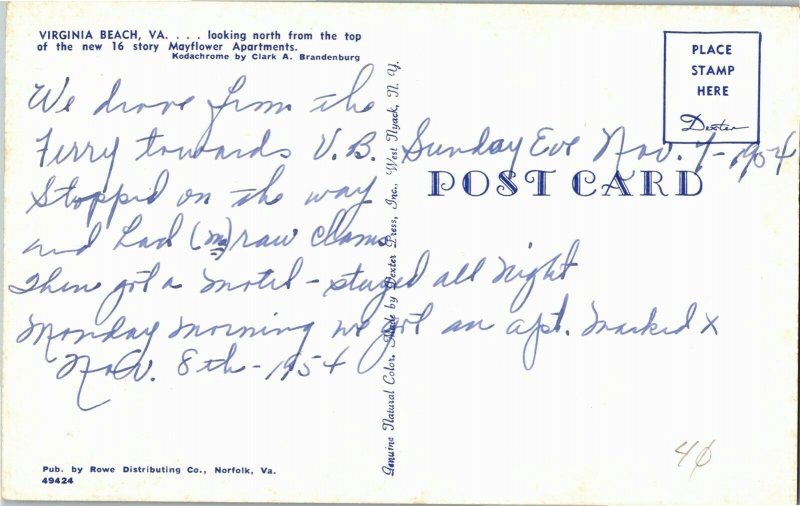 VIRGINIA BEACH, VA. . . . looking north from the top
of the new 16 story Mayflower Apartments.
Kodachrome by Clark A. Brandenburg
PLACE
STAMP
HERE
Dexter
POST CARD
We drove from the
Ferry towards V.B. Sunday Eve Nov. 7-1954
Stopped on the way
and had (m) raw clams
Then got a motel - stayed all night
Monday morning we got an apt. marked X
Nov. 8th - 1954
Genuine Natural Color. Made by Dexter Press, Inc., West Nyack, N. Y.
4¢
Pub. by Rowe Distributing Co., Norfolk, Va.
49424